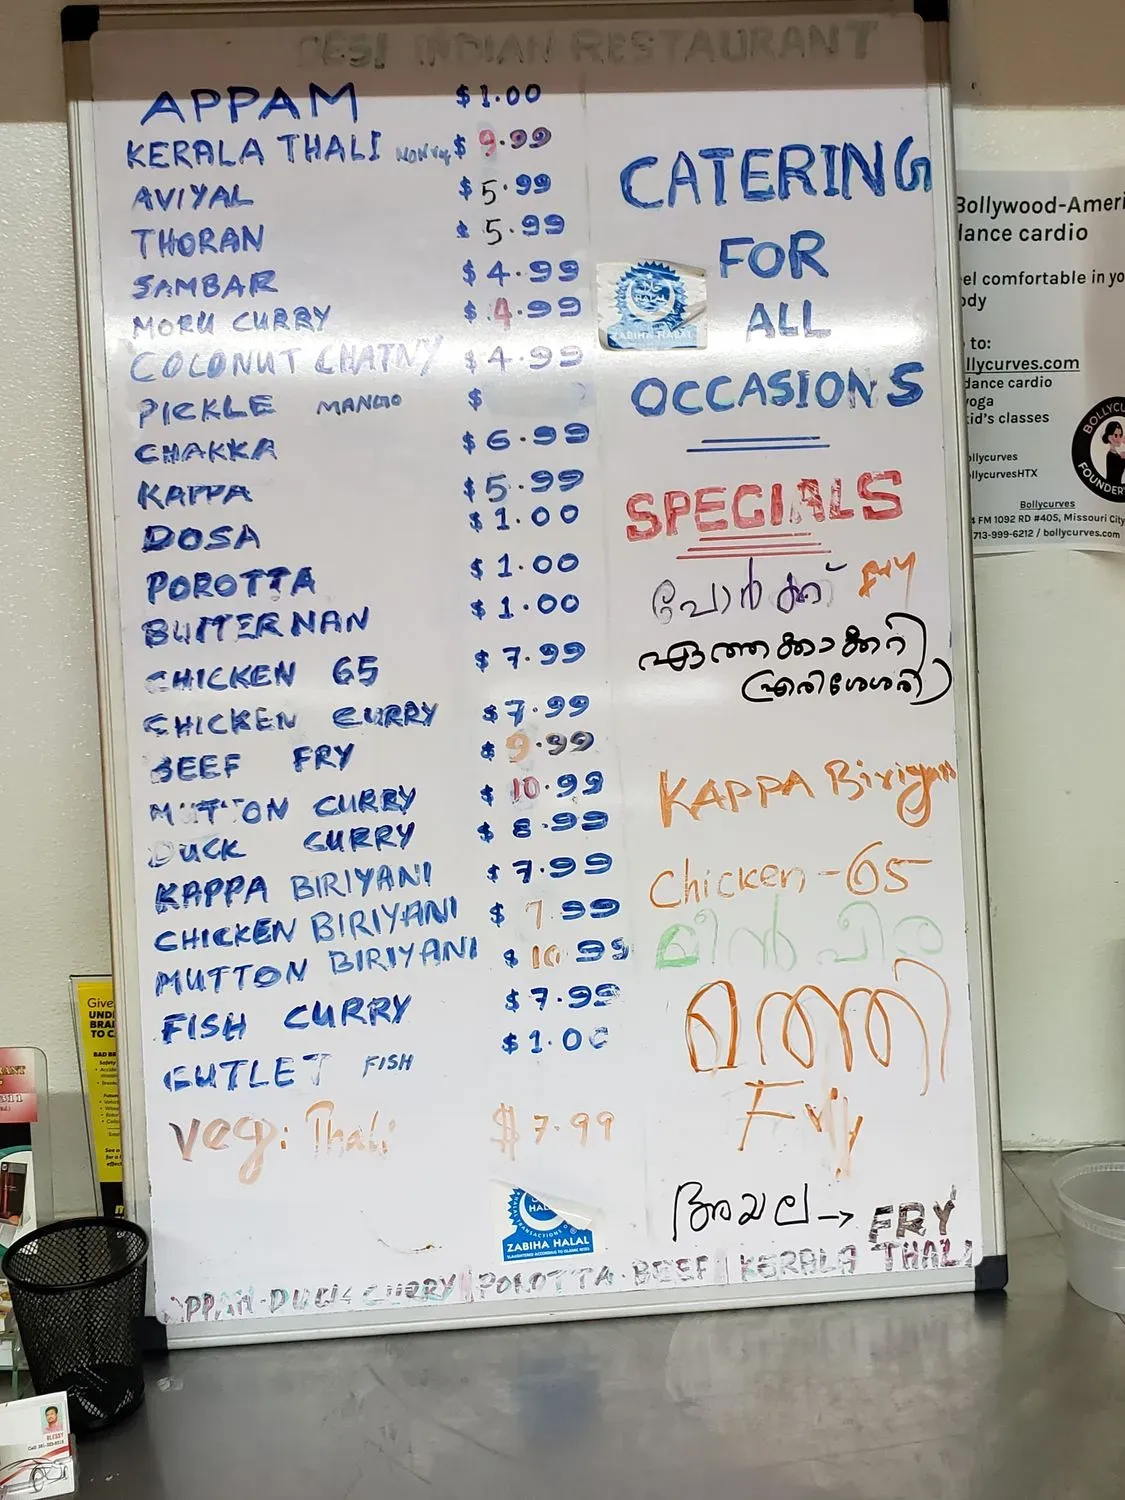 DESI INDIAN RESTAURANT
APPAM $1.00
KERALA THALI NON VEG $9.99
AVIYAL $5.99
THORAN $5.99
SAMBAR $4.99
MORU CURRY $4.99
COLONUT CHATNY $4.99
PICKLE MANGO $
CHAKKA $6.99
KAPPA $5.99
DOSA $1.00
POROTTA $1.00
BUTTER NAN $1.00
CHICKEN 65 $7.99
CHICKEN CURRY $7.99
BEEF FRY $9.99
MUTTON CURRY $10.99
DUCK CURRY $8.99
KAPPA BIRIYANI $7.99
CHICKEN BIRIYANI $7.99
MUTTON BIRIYANI $10.99
FISH CURRY $7.99
CUTLET FISH $1.00
Veg: Thali $7.99
CATERING
FOR
ALL
OCCASIONS
SPECIALS
പോർക്ക് FRY
ഏത്തക്കാക്കറി
(എരിശേശരി)
KAPPA Biriyani
Chicken-65
മീൻ പീര
മത്തി
Fry
അയല → FRY
APPAM-DUCK CURRY | POROTTA-BEEF | KERALA THALI
ZABIHA HALAL
ZABIHA HALAL
Bollywood-Ameri
dance cardio
el comfortable in yo
ody
to:
llycurves.com
dance cardio
yoga
kid's classes
ollycurves
ollycurvesHTX
Bollycurves
FM 1092 RD #405, Missouri City
713-999-6212 / bollycurves.com
BOLLYCU
FOUNDER
Give
UND
BRA
TO C
BLESSY